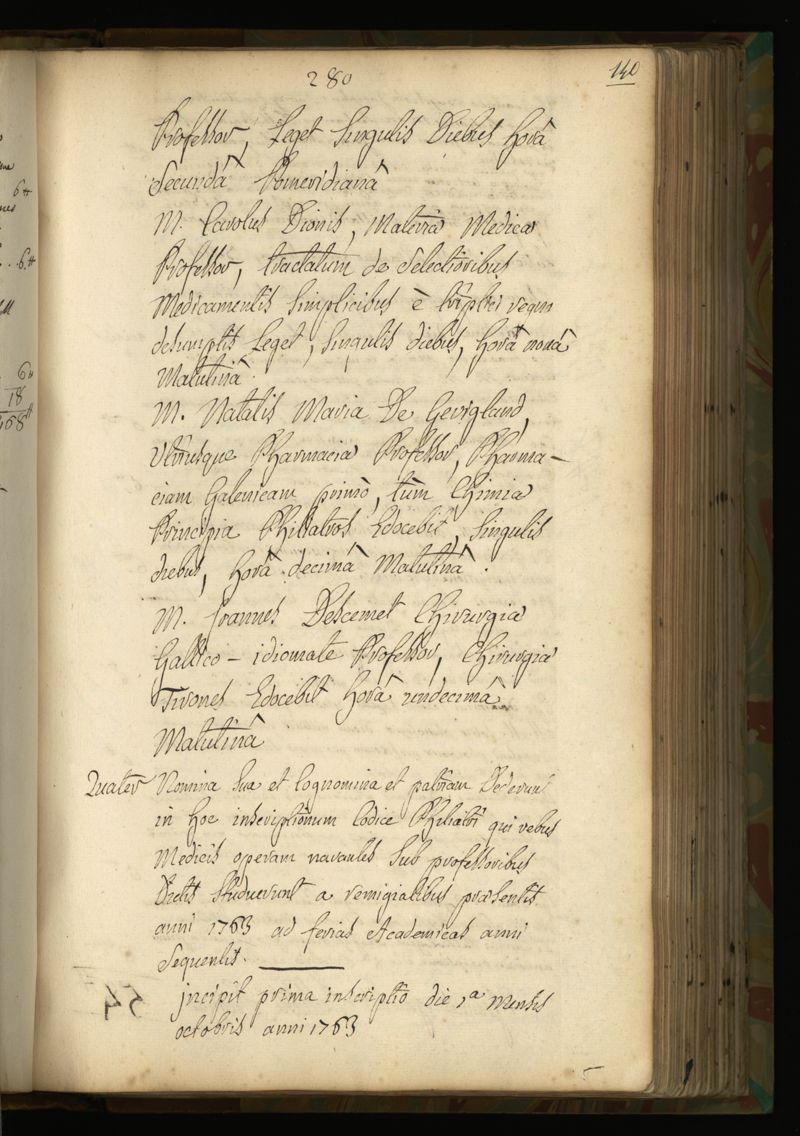 280
140
Professor, Leget Singulis Diebus horâ
Secundâ Pomeridianâ
M. Carolus Dionis, Materia Medica
Professor, tractatum de Selectioribus
Medicamentis Simplicibus è triplici regno
desumptis Leget, Singulis diebus, horâ nonâ
Matutinâ.
M. Natalis Maria De Gevigland,
Utriusque Pharmacia Professor, Pharma-
ciam Galenicam primò, tùm Chimia
Principia Philiatros Edocebit, Singulis
diebus, horâ decimâ Matutinâ.
M. Joannes Descemet Chirurgia
Gallico - idiomate Professor, Chirurgia
Tirones Edocebit horâ undecimâ
Matutinâ
Quater Nomina Sua et Cognomina et patriam Dederunt
in hoc inscriptionum Codice Philiatri qui rebus
Medicis operam navantes Sub professoribus
Dictis Studuerunt a remigialibus præsentis
anni 1763 ad ferias Academicas anni
Sequentis.
jncipit prima inscriptio die 1a Mensis
octobris anni 1763
6
18
168